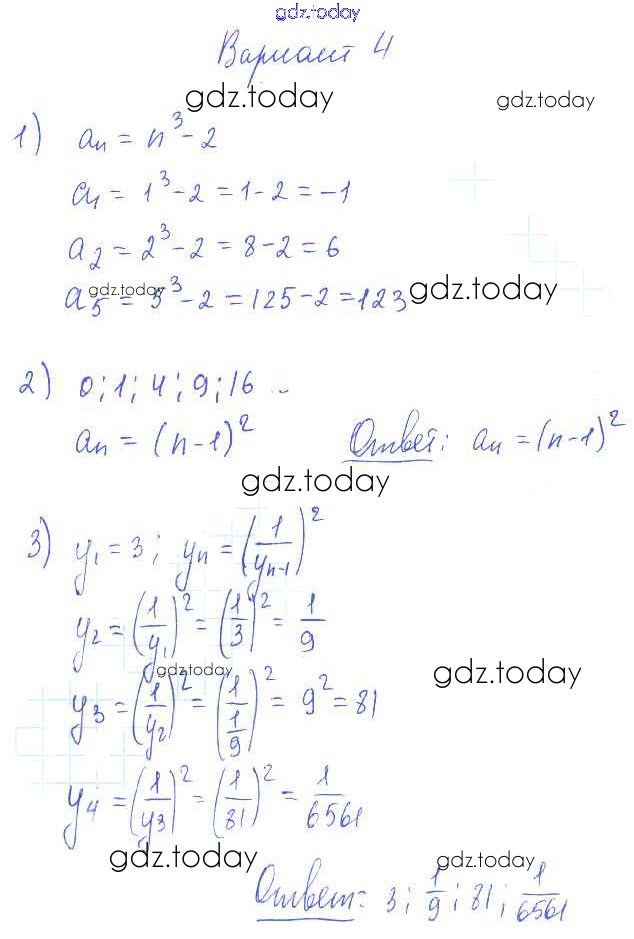 gdz.today
Вариант 4
gdz.today gdz.today
1) aₙ = n³ - 2
a₁ = 1³ - 2 = 1 - 2 = -1
a₂ = 2³ - 2 = 8 - 2 = 6
gdz.today gdz.today
a₅ = 5³ - 2 = 125 - 2 = 123
2) 0; 1; 4; 9; 16 ...
aₙ = (n-1)² Ответ: aₙ = (n-1)²
gdz.today
3) y₁ = 3; yₙ = (1/yₙ₋₁)²
y₂ = (1/y₁)² = (1/3)² = 1/9
gdz.today gdz.today
y₃ = (1/y₂)² = (1/(1/9))² = 9² = 81
y₄ = (1/y₃)² = (1/81)² = 1/6561
gdz.today gdz.today
Ответ: 3; 1/9; 81; 1/6561